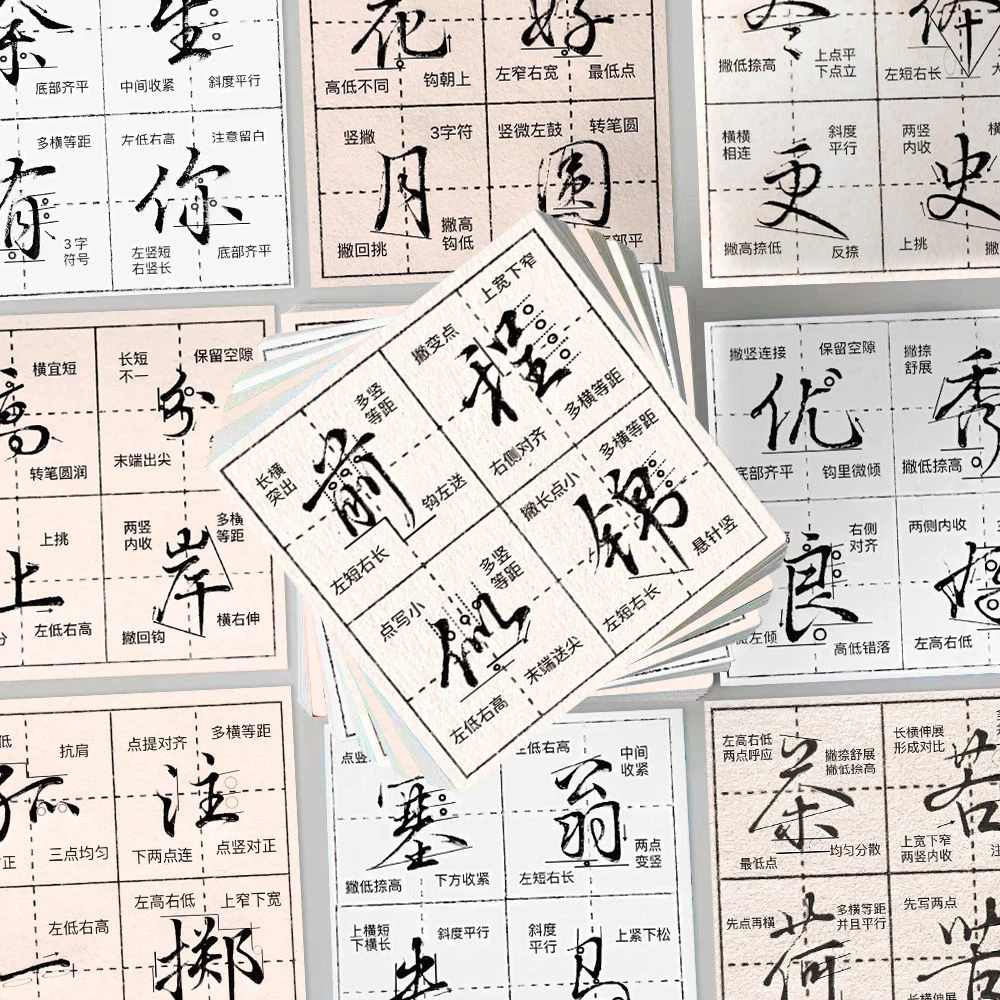 秦
生
底部齐平
中间收紧
斜度平行
多横等距
左低右高
注意留白
有
你
3字
符号
左竖短
右竖长
底部齐平
花
好
高低不同
钩朝上
左窄右宽
最低点
竖撇
3字符
竖微左鼓
转笔圆
月
圆
撇回挑
撇高
钩低
撇低捺高
上点平
下点立
左短右长
横横
相连
斜度
平行
两竖
内收
更
史
撇高捺低
反捺
上挑
横宜短
长短
不一
保留空隙
转笔圆润
末端出尖
上挑
两竖
内收
多横
等距
上
岸
左低右高
撇回钩
横右伸
撇变点
上宽下窄
程
右侧对齐
多横等距
长横
突出
多竖
等距
前
左短右长
钩左送
撇长点小
多横等距
锦
左短右长
悬针竖
点写小
多竖
等距
似
左低右高
末端送尖
撇竖连接
保留空隙
撇捺
舒展
优
秀
底部齐平
钩里微倾
撇低捺高
右侧
对齐
两侧内收
良
左倾
高低错落
左高右低
抗肩
点提对齐
多横等距
注
三点均匀
下两点连
点竖对正
左低右高
左高右低
上窄下宽
一
掷
左低右高
中间
收紧
塞
翁
撇低捺高
下方收紧
左短右长
两点
变竖
上横短
下横长
斜度平行
斜度
平行
上紧下松
左高右低
两点呼应
撇捺舒展
撇低捺高
长横伸展
形成对比
茶
若
最低点
均匀分散
上宽下窄
两竖内收
先点再横
多横等距
并且平行
先写两点
荷
长横伸展